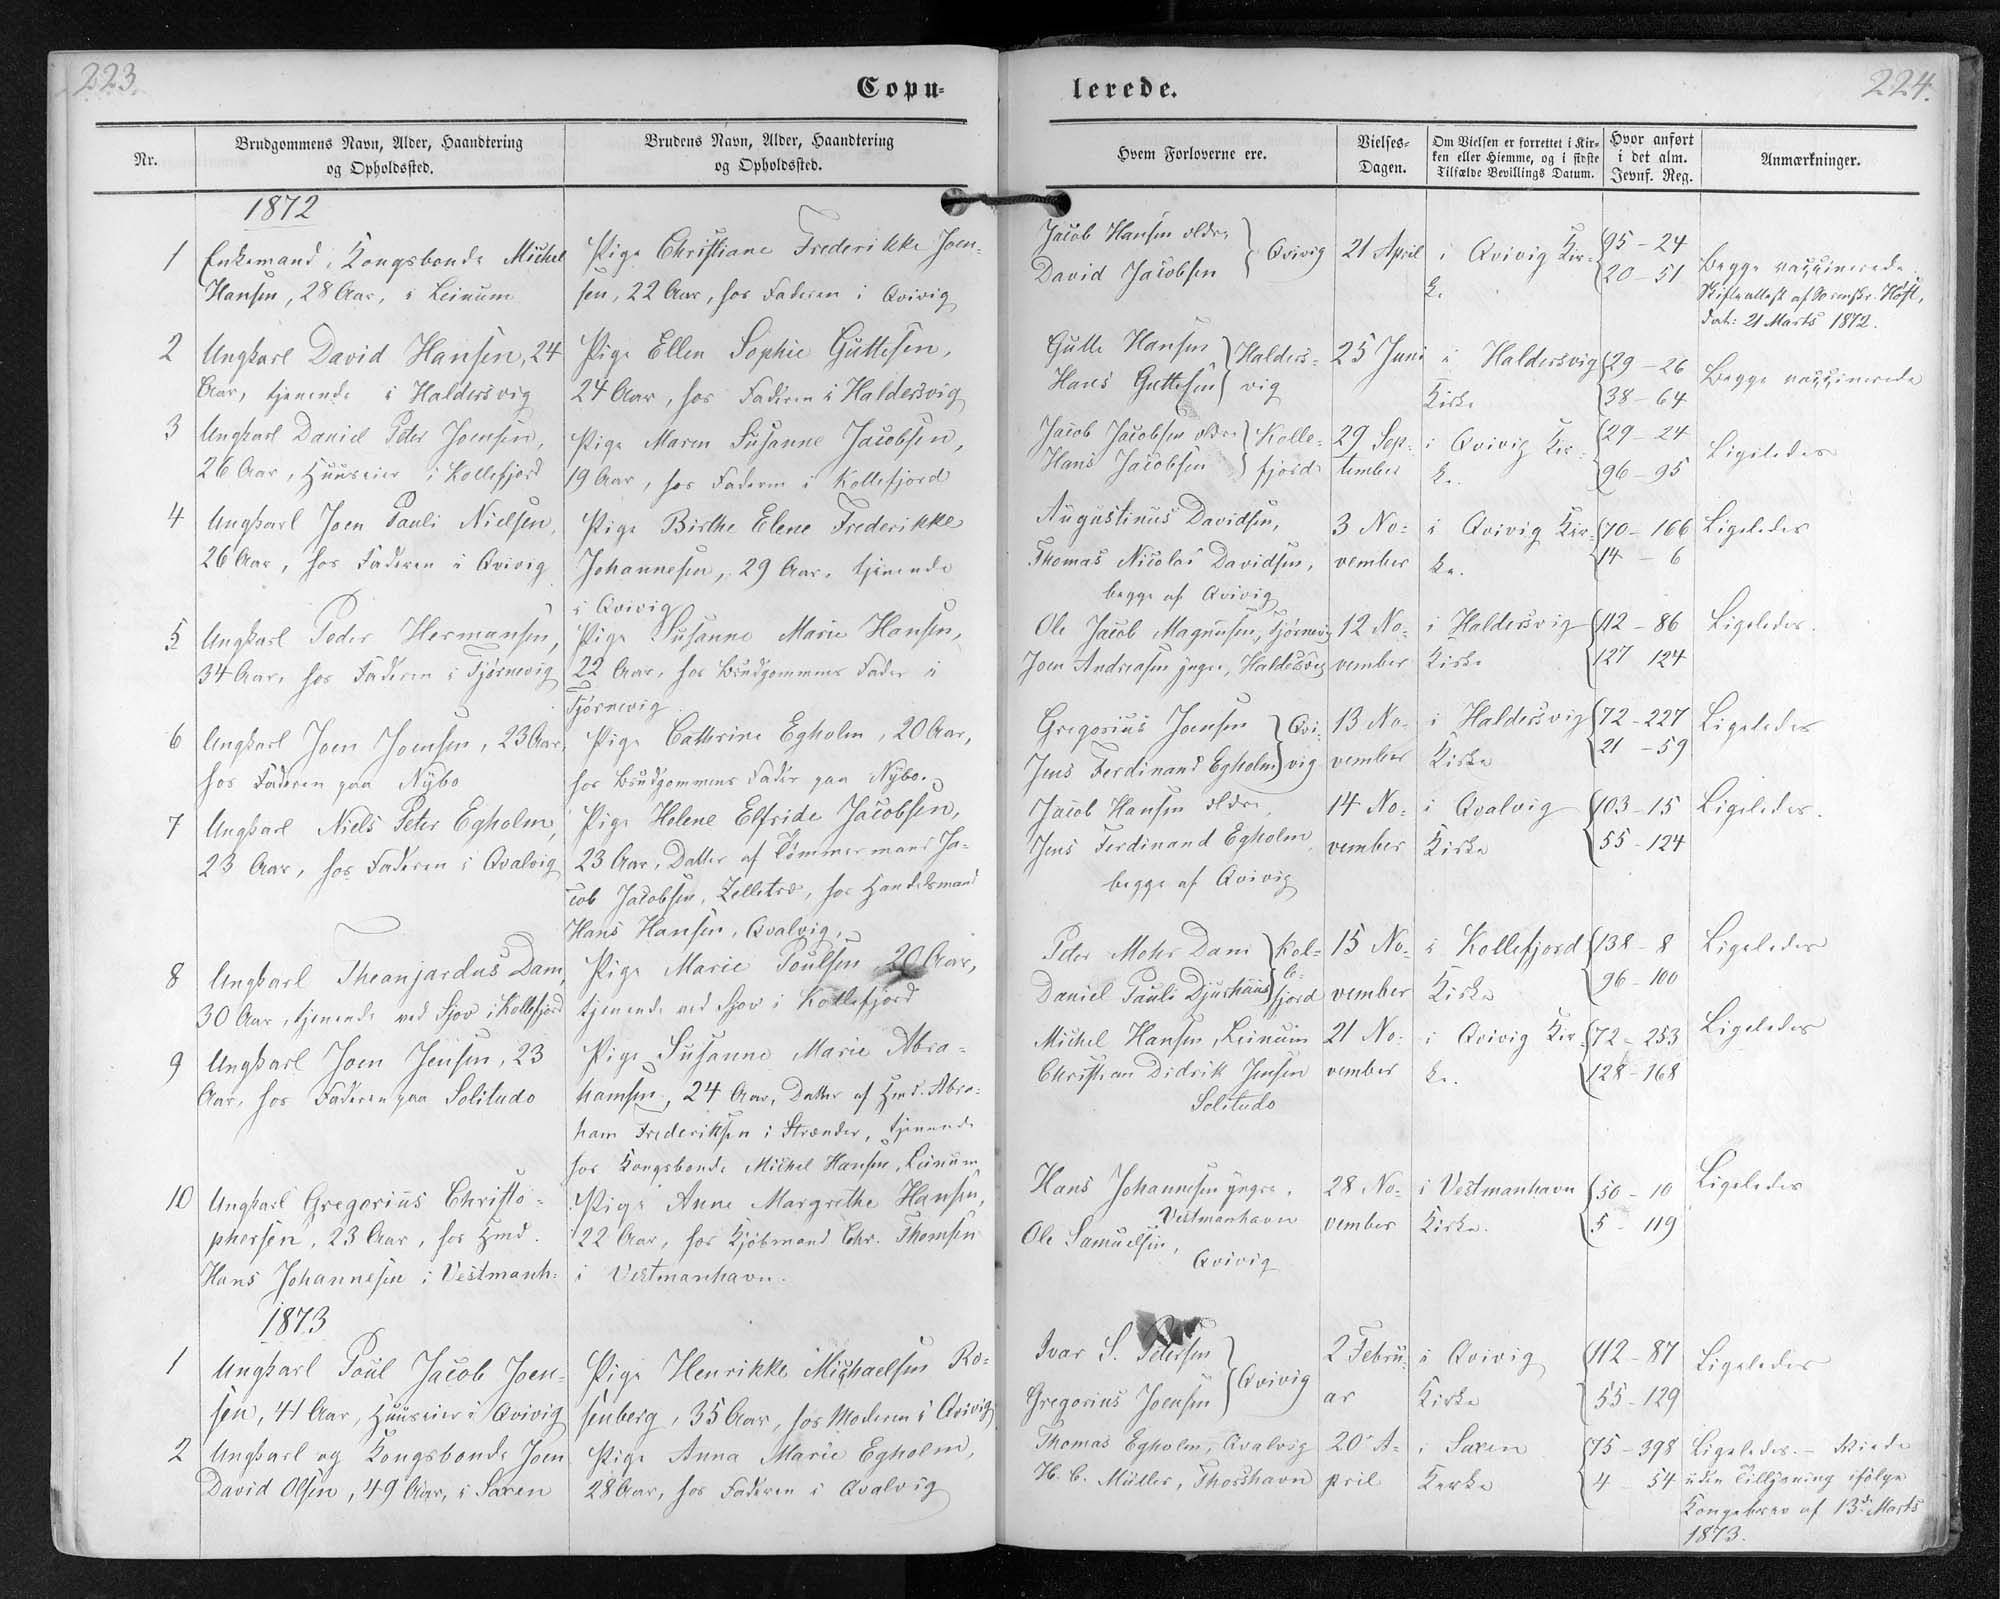 223.
Copu-
lerede.
224.
Nr.
Brudgommens Navn, Alder, Haandtering
og Opholdssted.
Brudens Navn, Alder, Haandtering
og Opholdssted.
Hvem Forloverne ere.
Vielses-
Dagen.
Om Vielsen er forrettet i Kir-
ken eller Hiemme, og i sidste
Tilfælde Bevillings Datum.
Hvor anført
i det alm.
Jevnf. Reg.
Anmærkninger.
1872
1
Enkemand, Kongsbonde Michel
Hansen, 28 Aar, i Leinum
Pige Christiane Frederikke Joen-
sen, 22 Aar, hos Faderen i Qvivig
Jacob Hansen ældre
David Jacobsen
Qvivig
21 April
i Qvivig Kir-
ke
95 - 24
20 - 51
Begge vaccinerede.
Skifteattest af Sorenskr. Høst,
dat: 21 Marts 1872.
2
Ungkarl David Hansen, 24
Aar, tjenende i Haldersvig
Pige Ellen Sophie Guttesen,
24 Aar, hos Faderen i Haldersvig
Gutte Hansen
Hans Guttesen
Halders-
vig
25 Juni
i Haldersvig
Kirke
29 - 26
38 - 64
Begge vaccinerede
3
Ungkarl Daniel Peter Joensen,
26 Aar, Huuseier i Kollefjord
Pige Maren Susanne Jacobsen,
19 Aar, hos Faderen i Kollefjord
Jacob Jacobsen ældre
Hans Jacobsen
Kolle-
fjord
29 Sep-
tember
i Qvivig Kir-
ke.
29 - 24
96 - 95
Ligeledes
4
Ungkarl Joen Pauli Nielsen,
26 Aar, hos Faderen i Qvivig
Pige Birthe Elene Frederikke
Johannesen, 29 Aar, tjenende
i Qvivig
Augustinus Davidsen,
Thomas Nicolai Davidsen,
begge af Qvivig
3 No-
vember
i Qvivig Kir-
ke.
70 - 166
14 - 6
Ligeledes
5
Ungkarl Peder Hermansen,
34 Aar, hos Faderen i Tjørnevig
Pige Susanne Marie Hansen,
22 Aar, hos Brudgommens Fader i
Tjørnevig
Ole Jacob Magnusen, Tjørnevig
Joen Andreasen yngre, Haldersvig
12 No-
vember
i Haldersvig
Kirke
112 - 86
127 - 124
Ligeledes.
6
Ungkarl Joen Joensen, 23 Aar,
hos Faderen paa Nybo
Pige Cathrine Egholm, 20 Aar,
hos Brudgommens Fader paa Nybo.
Gregorius Joensen
Jens Ferdinand Egholm
Qvi-
vig
13 No-
vember
i Haldersvig
Kirke
72 - 227
21 - 59
Ligeledes
7
Ungkarl Niels Peter Egholm,
23 Aar, hos Faderen i Qvalvig
Pige Helene Elfride Jacobsen,
23 Aar, Datter af Tømmermand Ja-
cob Jacobsen, Zelletræ, hos Handelsmand
Hans Hansen, Qvalvig.
Jacob Hansen ældre,
Jens Ferdinand Egholm,
begge af Qvivig
14 No-
vember
i Qvalvig
Kirke
103 - 15
55 - 124
Ligeledes.
8
Ungkarl Theanjardus Dam,
30 Aar, tjenende ved Sjov i Kollefjord
Pige Marie Poulsen 20 Aar,
tjenende ved Sjov i Kollefjord
Peter Mohr Dam
Daniel Pauli Djurhuus
Kol-
le-
fjord
15 No-
vember
i Kollefjord
Kirke
138 - 8
96 - 100
Ligeledes
9
Ungkarl Joen Jensen, 23
Aar, hos Faderen paa Solitudo
Pige Susanne Marie Abra-
hamsen, 24 Aar, Datter af Hmd. Abra-
ham Frederiksen i Strænder, tjenende
hos Kongsbonde Michel Hansen, Leinum
Michel Hansen, Leinum
Christian Didrik Jensen
Solitudo
21 No-
vember
i Qvivig Kir-
ke.
72 - 253
128 - 168
Ligeledes
10
Ungkarl Gregorius Christo-
phersen, 23 Aar, hos Hmd.
Hans Johannesen i Vestmanh-
Pige Anne Margrethe Hansen,
22 Aar, hos Kjøbmand Chr. Thomsen
i Vestmanhavn.
Hans Johannesen yngre,
Vestmanhavn
Ole Samuelsen,
Qvivig
28 No-
vember
i Vestmanhavn
Kirke.
50 - 10
5 - 119
Ligeledes
1873
1
Ungkarl Poul Jacob Joen-
sen, 41 Aar, Huuseier i Qvivig
Pige Henrikke Michaelsen Ro-
senberg, 35 Aar, hos Moderen i Qvivig
Ivar S. Petersen
Gregorius Joensen
Qvivig
2 Febru-
ar
i Qvivig
Kirke
112 - 87
55 - 129
Ligeledes
2
Ungkarl og Kongsbonde Joen
David Olsen, 49 Aar, i Saxen
Pige Anna Marie Egholm,
28 Aar, hos Faderen i Qvalvig
Thomas Egholm, Qvalvig
H. C. Müller, Thorshavn
20 A-
pril
i Saxen
Kirke
75 - 398
4 - 54
Ligeledes. - Viede
uden Tillysning ifølge
Kongebrev af 13d. Marts
1873.